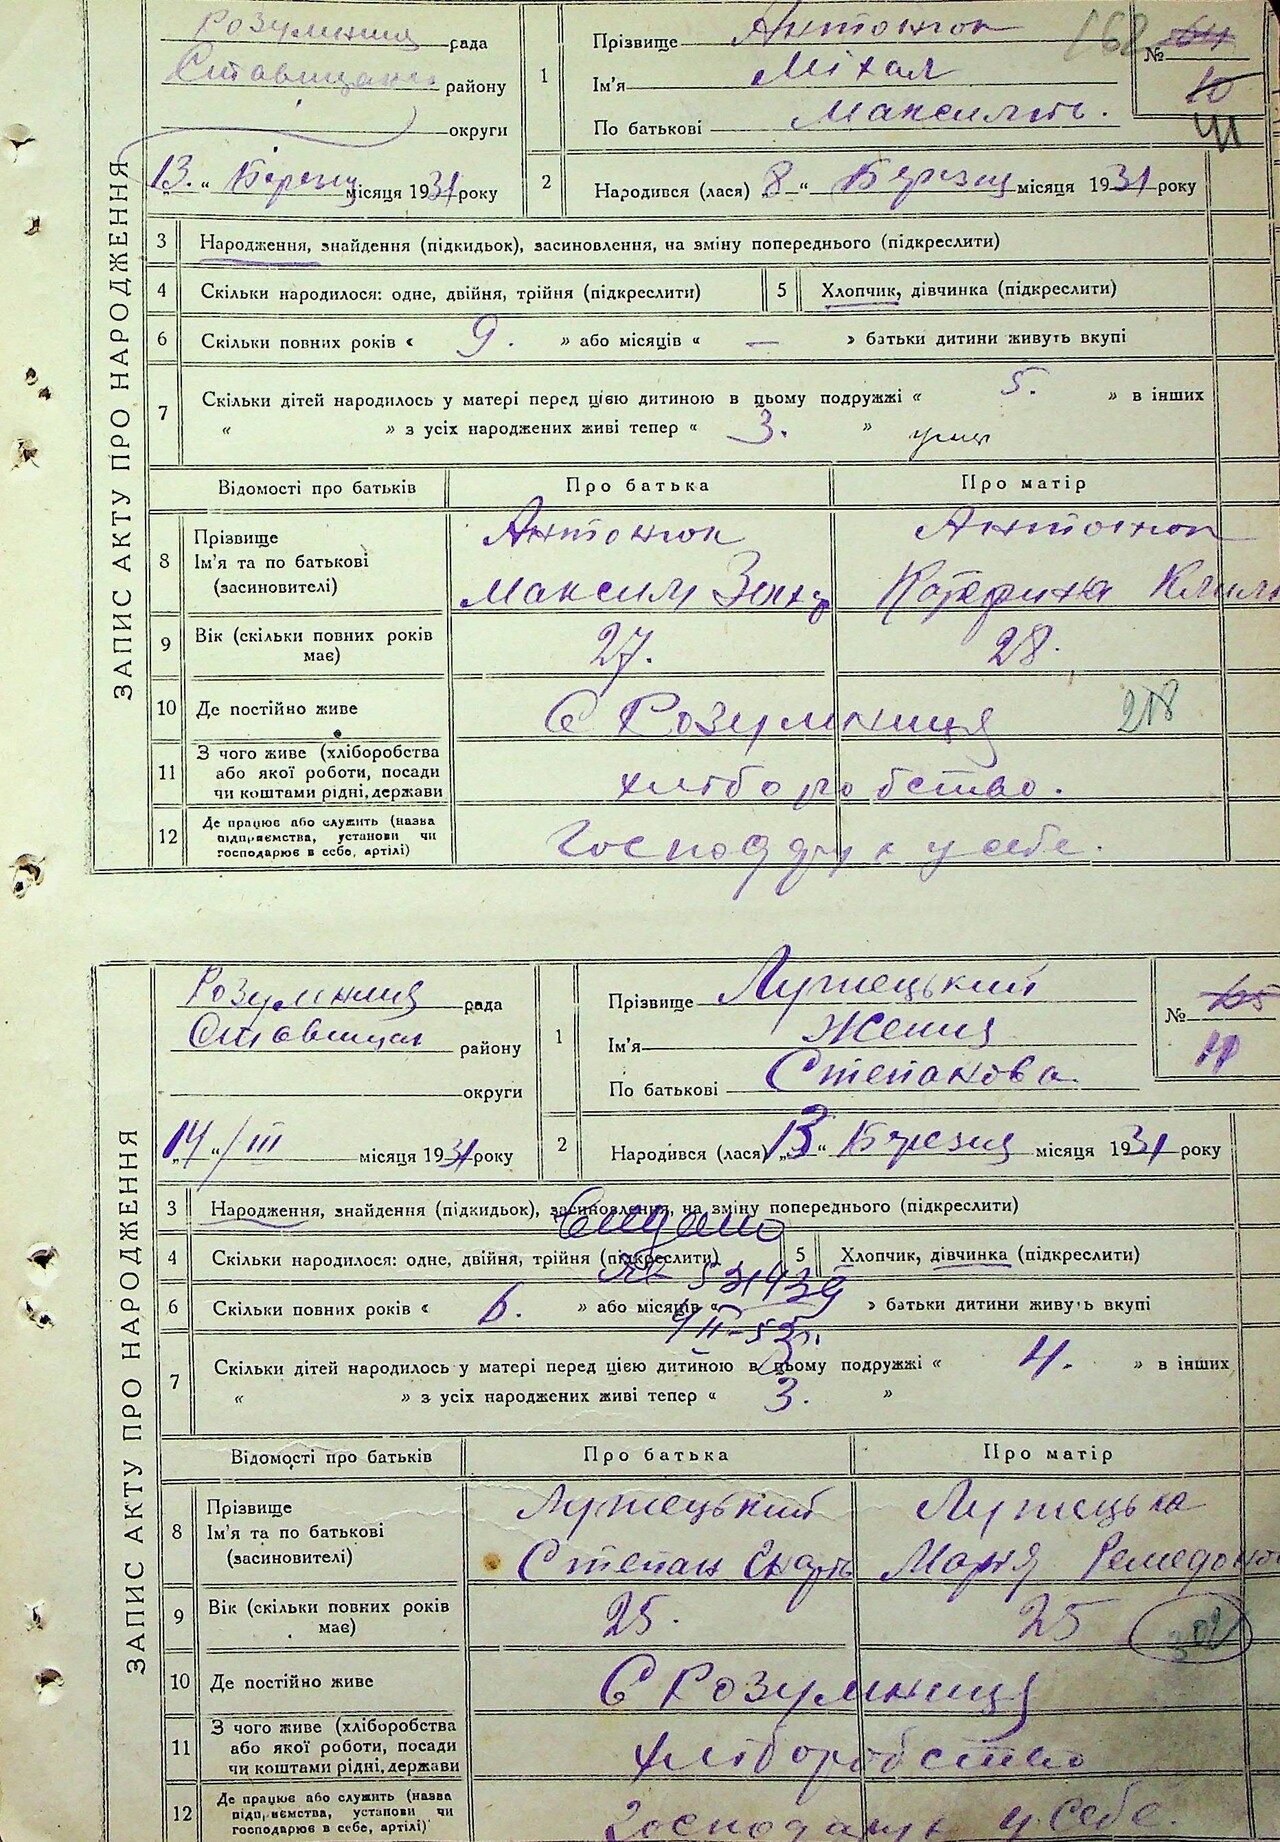 ЗАПИС АКТУ ПРО НАРОДЖЕННЯ
рада
району
округи
„13.“ Березня місяця 1931 року
1
Прізвище Антонюк
Ім'я Міхал
По батькові
№ 64
10
41
162
2
Народився (лася) „8“ Березня місяця 1931 року
3 Народження, знайдення (підкидьок), засиновлення, на зміну попереднього (підкреслити)
4 Скільки народилося: одне, двійня, трійня (підкреслити) 5 Хлопчик, дівчинка (підкреслити)
6 Скільки повних років « 9. » або місяців « — » батьки дитини живуть вкупі
7 Скільки дітей народилось у матері перед цією дитиною в цьому подружжі « 5. » в інших
« » з усіх народжених живі тепер « 3. »
Відомості про батьків Про батька Про матір
8 Прізвище
Ім'я та по батькові
(засиновителі)
Антонюк
Максим
Антонюк
Катерина
9 Вік (скільки повних років
має)
27. 28.
10 Де постійно живе С Розумниця 218
11 З чого живе (хліборобства
або якої роботи, посади
чи коштами рідні, держави
хліборобство.
12 Де працює або служить (назва
підприємства, установи чи
господарює в себе, артілі)
у себе.
ЗАПИС АКТУ ПРО НАРОДЖЕННЯ
рада
району
округи
„14“ / III місяця 1931 року
1
Прізвище Лужецький
Ім'я Женя
По батькові Степанова.
№ 65
11
2
Народився (лася) „13“ Березня місяця 1931 року
3 Народження, знайдення (підкидьок), засиновлення, на зміну попереднього (підкреслити)
4 Скільки народилося: одне, двійня, трійня (підкреслити) 5 Хлопчик, дівчинка (підкреслити)
6 Скільки повних років « 6. » або місяців « » батьки дитини живуть вкупі
7 Скільки дітей народилось у матері перед цією дитиною в цьому подружжі « 4. » в інших
« » з усіх народжених живі тепер « 3. »
Відомості про батьків Про батька Про матір
8 Прізвище
Ім'я та по батькові
(засиновителі)
Лужецький
Степан
Лужецька
Марія
9 Вік (скільки повних років
має)
25. 25 302
10 Де постійно живе С Розумниця
11 З чого живе (хліборобства
або якої роботи, посади
чи коштами рідні, держави
хліборобство
12 Де працює або служить (назва
підприємства, установи чи
господарює в себе, артілі)
у себе.